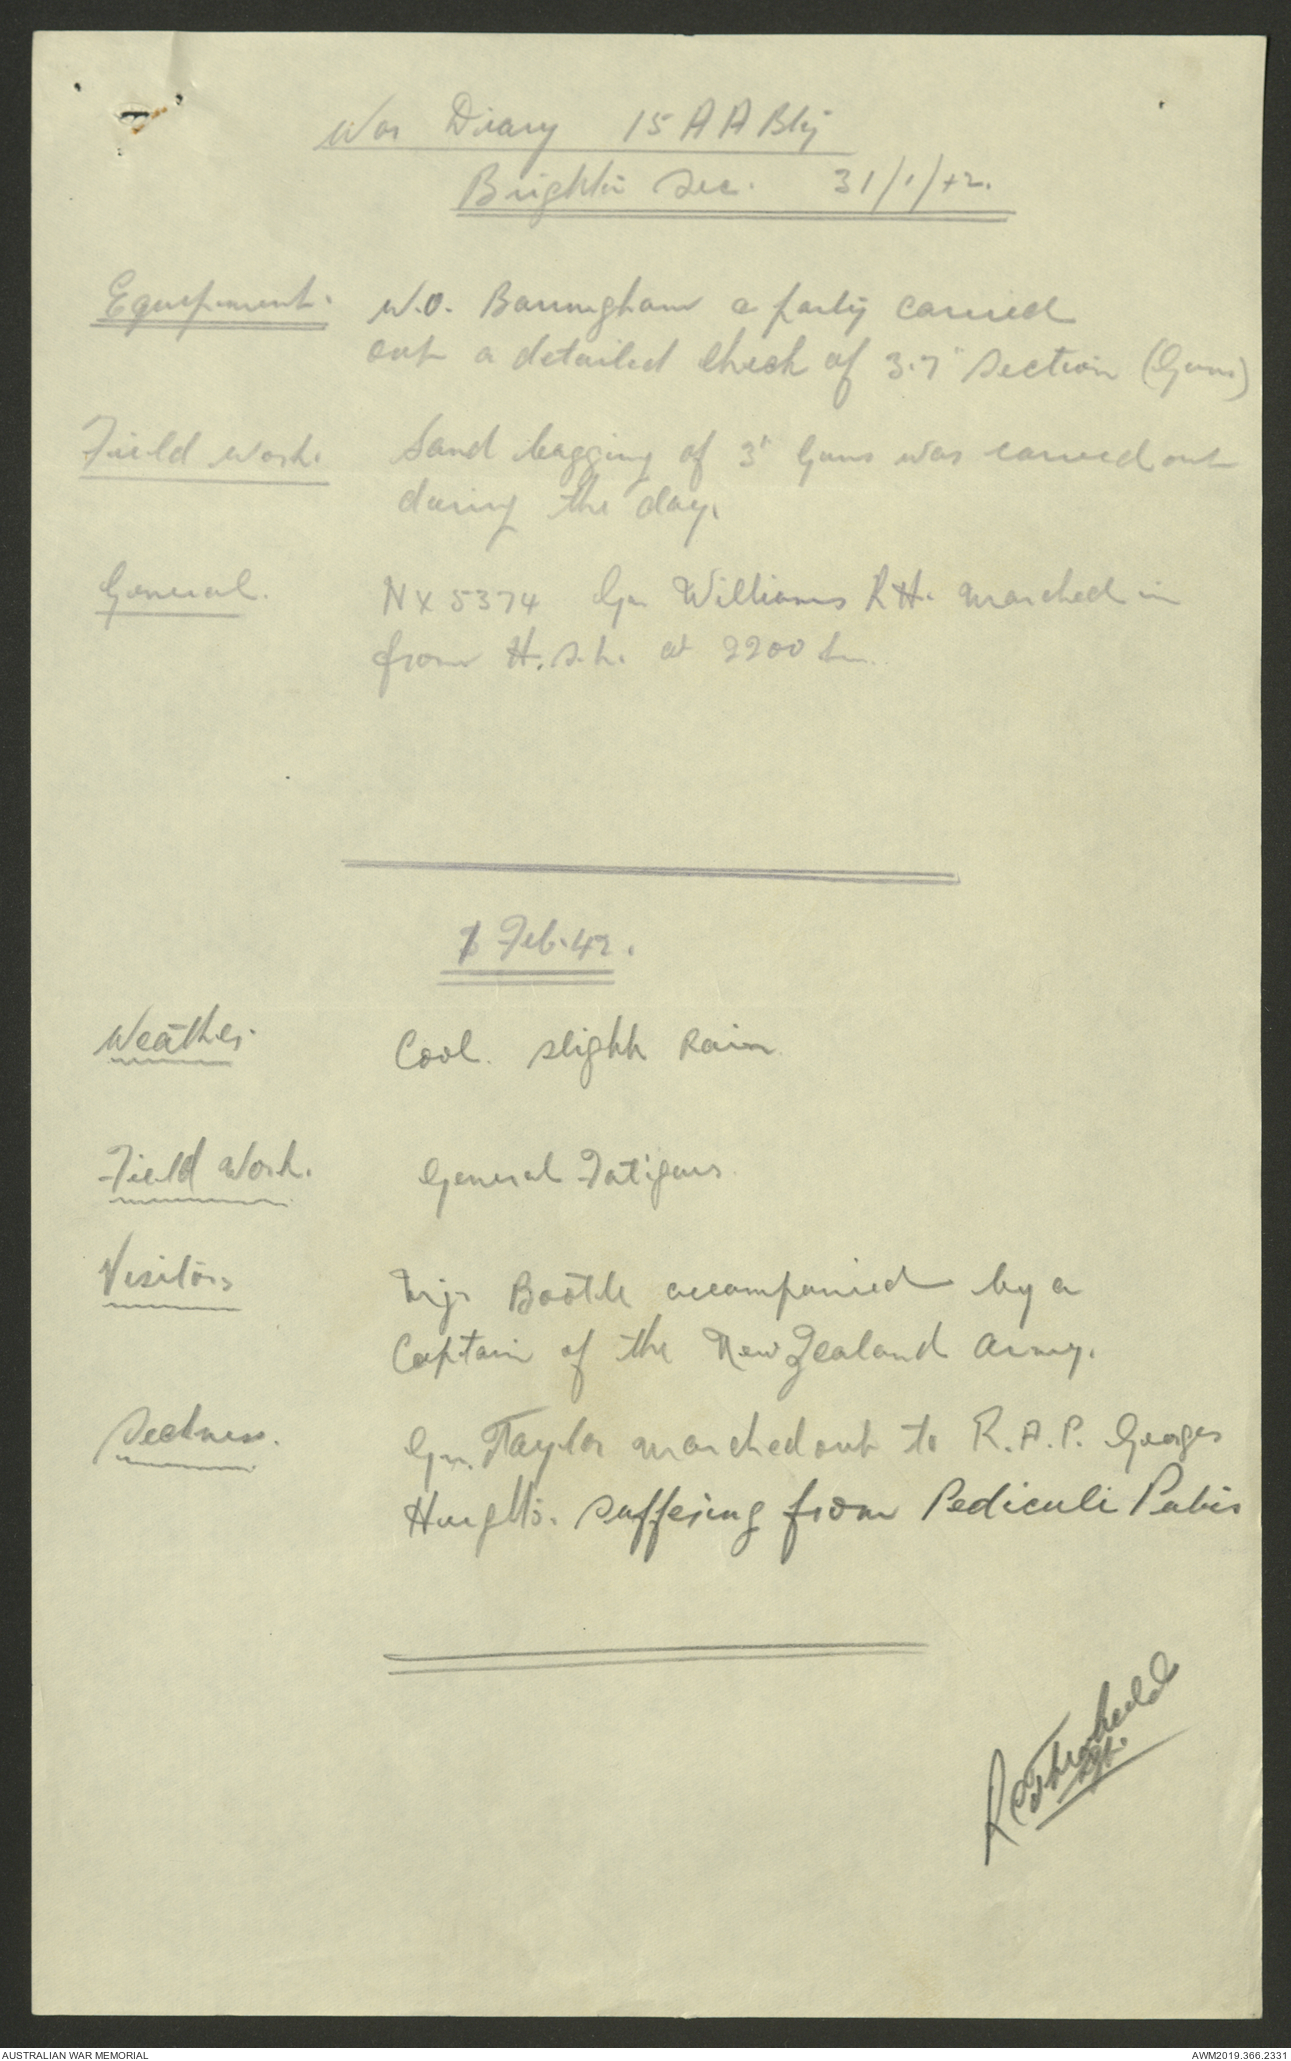 War Diary 15 A A Bty
Brighton Sec. 31/1/42.
Equipment. W.O. Barringham & party carried
out a detailed check of 3.7" section (Guns)
Field Work. Sand bagging of 3" Guns was carried out
during the day.
General. NX 5374 Gn Williams R H. marched in
from H.S.L. at 2200 hrs.
1 Feb. 42.
Weather. Cool. slight Rain.
Field Work. General Fatigues.
Visitors Mjr Bootle accompanied by a
Captain of the New Zealand Army.
Sickness. Gn. Taylor marched out to R.A.P. Georges
Hughts. suffering from Pediculi Pubis
AUSTRALIAN WAR MEMORIAL
AWM2019.366.2331